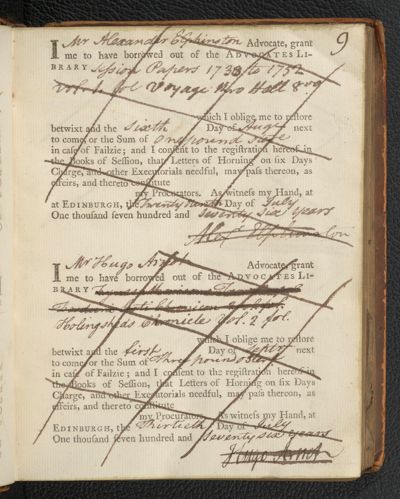 9
I Mr Alexander Elphinston Advocate, grant
me to have borrowed out of the ADVOCATES LI-
BRARY Session Papers 1738 to 1752
Voyage Hall 8vo
which I oblige me to restore
betwixt and the Sixth Day of Augt next
to come, or the Sum of One pound
in case of Failzie; and I consent to the registration hereof in
the Books of Session, that Letters of Horning on six Days
Charge, and other Executorials needful, may pass thereon, as
effeirs, and thereto constitute
my Procurators. As witness my Hand, at
at EDINBURGH, the Day of July
One thousand seven hundred and Seventy Six years
Alexr Elphinston
I Mr Hugo Arnot Advocate, grant
me to have borrowed out of the ADVOCATES LI-
BRARY
Holingsheds Chronicle vol. 2 fol.
which I oblige me to restore
betwixt and the first Day of next
to come, or the Sum of Three pounds
in case of Failzie; and I consent to the registration hereof in
the Books of Session, that Letters of Horning on six Days
Charge, and other Executorials needful, may pass thereon, as
effeirs, and thereto constitute
my Procurators. As witness my Hand, at
EDINBURGH, the Thirtieth Day of July
One thousand seven hundred and Seventy six years
Hugo Arnot